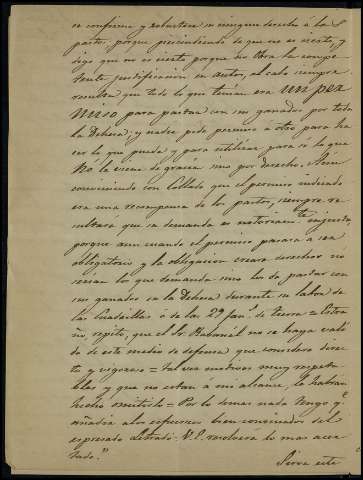 se confirma y robustece ni ningun derecho á la S
parte; porque prescindiendo de que no es cierto, y
digo que no es cierto porque no obra la compe
tente justificacion en autos, al cabo siempre
resulta que todo lo que tenían era un per
miso para pastar con sus ganados por toda
la Dehesa, y nadie pide permiso á otro para ha
cer lo que pueda y para utilizar para sí lo que
No le viene de gracia sino por derecho. Aun
conviniendo con Collado que el permiso indicado
era una recompensa de los pastos, siempre re
sultará que su demanda es notoriamte. injusta,
porque aun cuando el permiso pasara a ser
obligatorio y la obligacion creara derechos no
serian los que demanda sino los de pastar con
sus ganados en la Dehesa durante su labor de
las Cuadrillas ó de las 29 fan.s de tierra = Estra
ño, repito, que el Sr. Rabanál no se haya vali
do de este medio de defensa que considero direc
to y vigoroso = tal vez motivos muy respeta
bles y que no estan á mi alcance, le habran
hecho omitirlo = Por lo demas nada tengo qe.
añadir a los esfuerzos bien conocidos del
espresado Letrado. V.E. resolvera lo mas acer
tado."
Sirva este